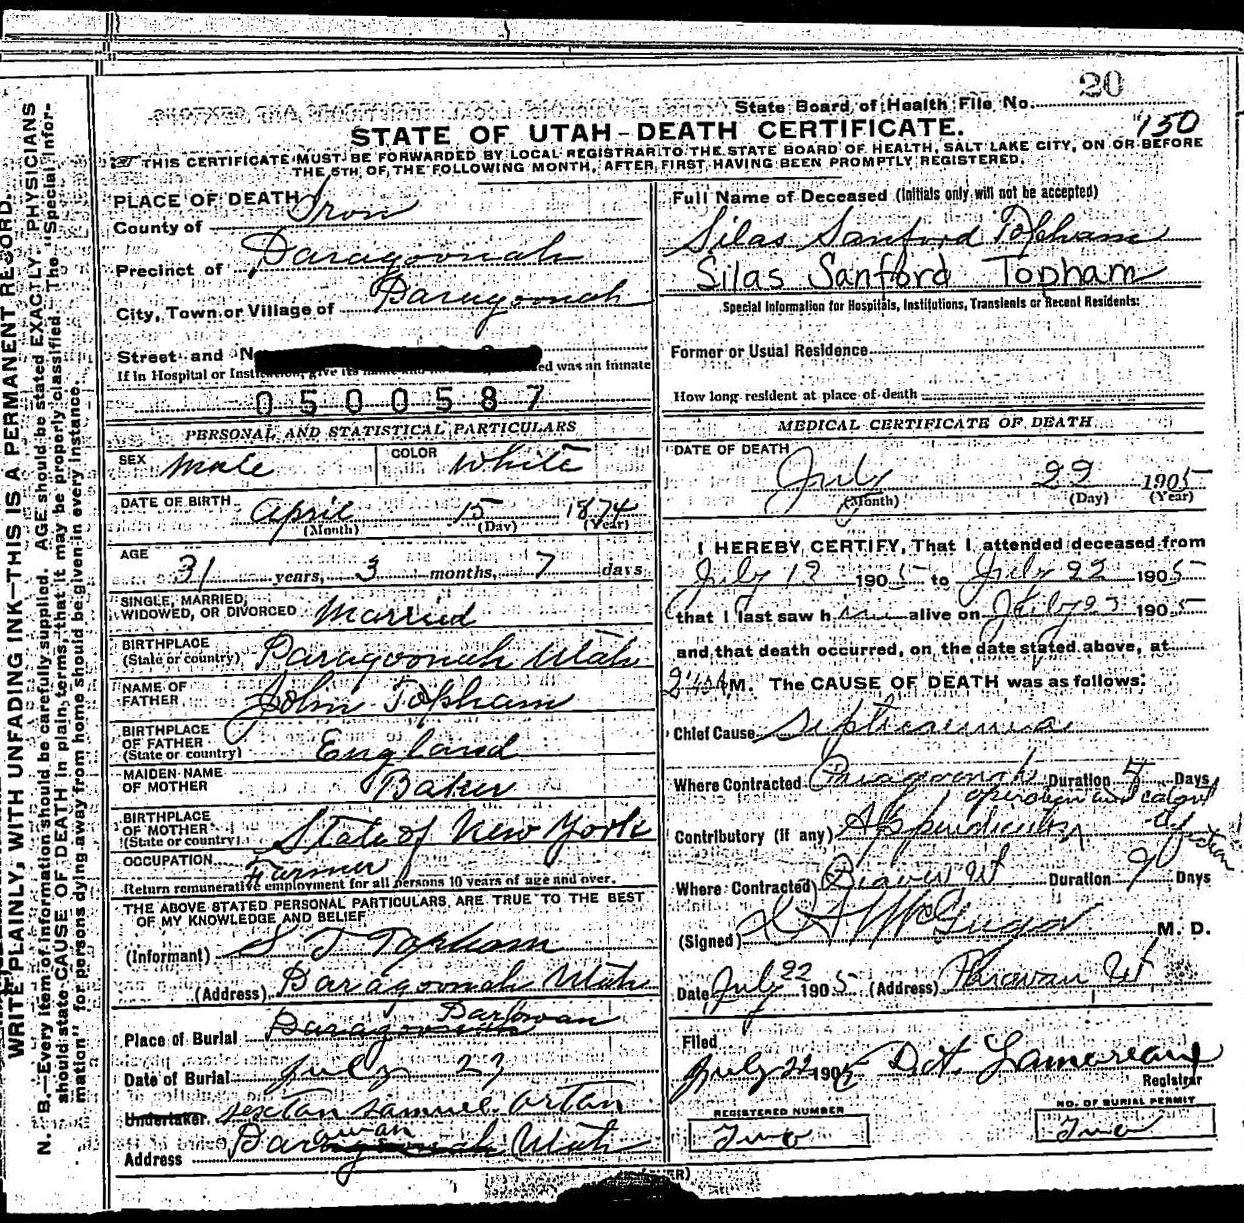 20
State Board of Health File No.
150
STATE OF UTAH-DEATH CERTIFICATE.
THIS CERTIFICATE MUST BE FORWARDED BY LOCAL REGISTRAR TO THE STATE BOARD OF HEALTH, SALT LAKE CITY, ON OR BEFORE
THE 5TH OF THE FOLLOWING MONTH, AFTER FIRST HAVING BEEN PROMPTLY REGISTERED.
WRITE PLAINLY, WITH UNFADING INK—THIS IS A PERMANENT RECORD.
N. B.—Every item of information should be carefully supplied. AGE should be stated EXACTLY. PHYSICIANS
should state CAUSE OF DEATH in plain terms, that it may be properly classified. The "Special Infor-
mation" for persons dying away from home should be given in every instance.
PLACE OF DEATH
County of Iron
Precinct of Paragoonah
City, Town or Village of Paragoonah
Street and N
If in Hospital or give its name and was an inmate
0500587
PERSONAL AND STATISTICAL PARTICULARS
SEX Male COLOR White
DATE OF BIRTH April 15 1874
(Month) (Day) (Year)
AGE 31 years, 3 months, 7 days
SINGLE, MARRIED,
WIDOWED, OR DIVORCED Married
BIRTHPLACE
(State or country) Paragoonah Utah
NAME OF
FATHER John Topham
BIRTHPLACE
OF FATHER
(State or country) England
MAIDEN NAME
OF MOTHER Baker
BIRTHPLACE
OF MOTHER
(State or country) State of New York
OCCUPATION Farmer
Return remunerative employment for all persons 10 years of age and over.
THE ABOVE STATED PERSONAL PARTICULARS ARE TRUE TO THE BEST
OF MY KNOWLEDGE AND BELIEF
(Informant) S T Topham
(Address) Paragoonah Utah
Parowan
Place of Burial Paragoonah
Date of Burial July 23
Undertaker sexton Samuel Orton
Address Parowan Utah
Full Name of Deceased (Initials only will not be accepted)
Silas Sanford Topham
Silas Sanford Topham
Special Information for Hospitals, Institutions, Transients or Recent Residents:
Former or Usual Residence
How long resident at place of death
MEDICAL CERTIFICATE OF DEATH
DATE OF DEATH
July 22 1905
(Month) (Day) (Year)
I HEREBY CERTIFY, That I attended deceased from
July 1905 to July 22 1905
that I last saw him alive on July 1905
and that death occurred, on the date stated above, at
M. The CAUSE OF DEATH was as follows:
Chief Cause Septicaemia
Where Contracted Paragoonah Duration Days
operation and
Contributory (if any) Appendicitis
Where Contracted Beaver Ut Duration 9 Days
(Signed) M. D.
Date July 22 1905 (Address) Parowan Ut
Filed
July 22 1905 Lamoreaux
Registrar
REGISTERED NUMBER
Two
NO. OF BURIAL PERMIT
Two